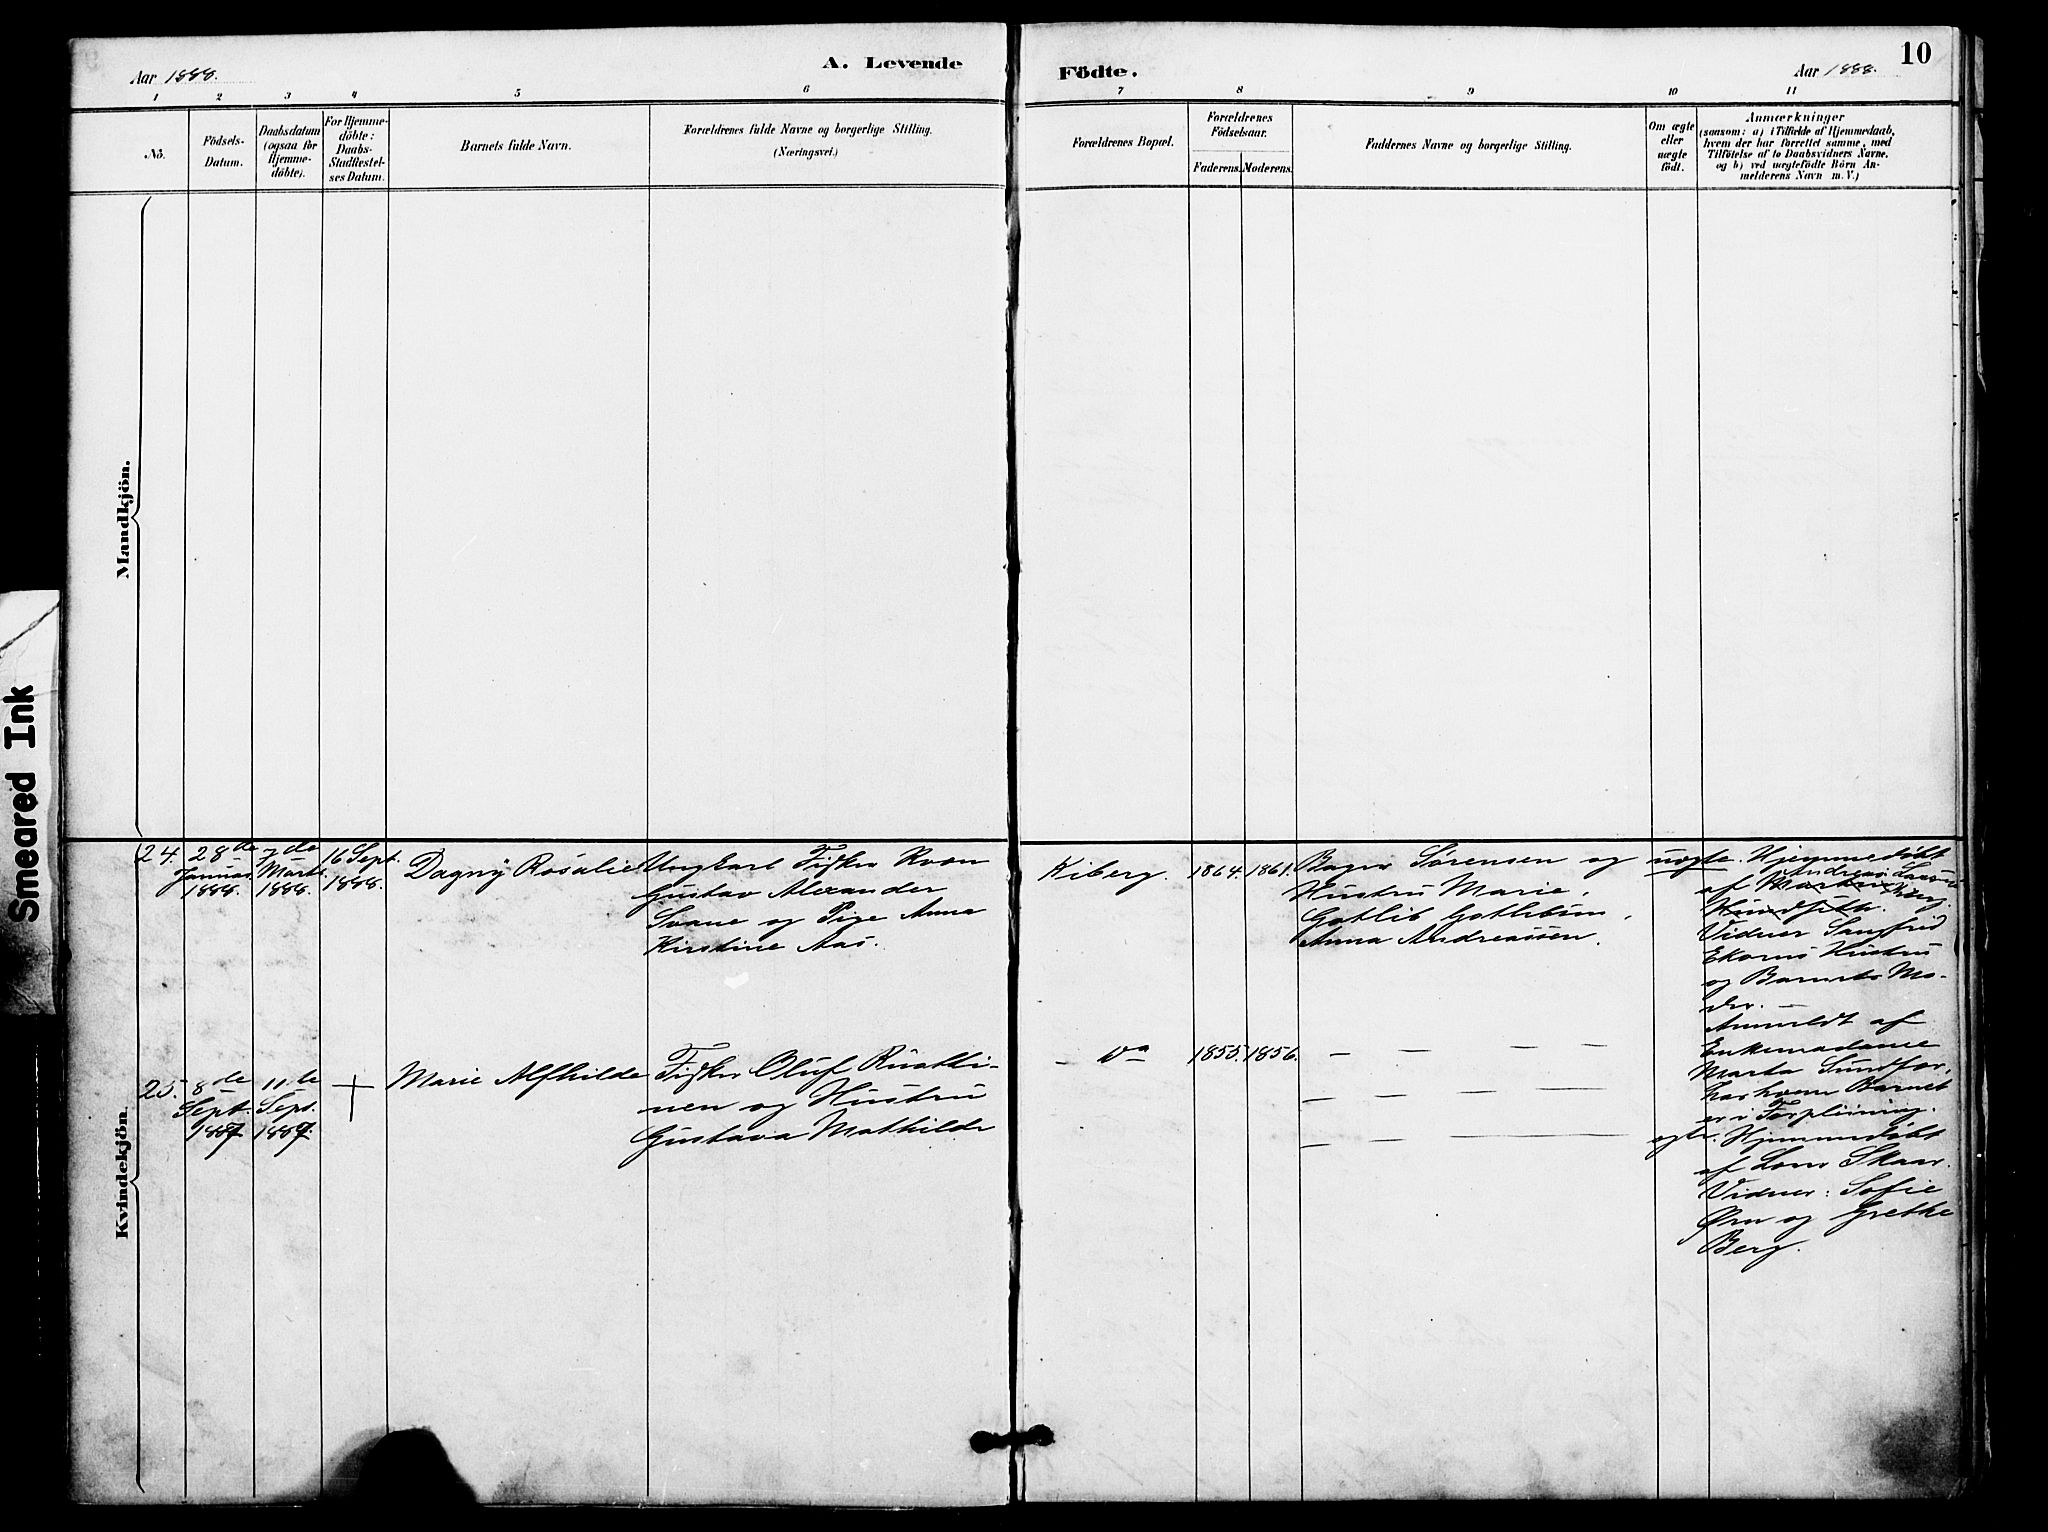 Smeared Ink
Aar 1888.
A. Levende
Födte.
Aar 1888.
10
1 2 3 4 5 6
7 8 9 10 11
No.
Födsels-
Datum.
Daabsdatum
(ogsaa for
Hjemme-
döbte).
For Hjemme-
döbte:
Daabs-
Stadfæstel-
ses Datum.
Barnets fulde Navn.
Forældrenes fulde Navne og borgerlige Stilling.
(Næringsvei.)
Forældrenes Bopæl.
Forældrenes
Födselsaar.
Faderens. Moderens.
Faddernes Navne og borgerlige Stilling.
Om ægte
eller
uægte
födt.
Anmærkninger
(saasom: a) i Tilfælde af Hjemmedaab,
hvem der har forrettet samme, med
Tilföielse af to Daabsvidners Navne,
og b) ved uægtefödte Börn An-
melderens Navn m. V.)
Mandkjön.
Kvindekjön.
24.
28de
Januar
1888.
7de
Marts
1888.
16 Sept.
1888.
Dagny Rosalie
Ungkarl Fisker Kvæn
Gustav Alexander
Svane og Pige Anna
Kirstine Aas.
Kiberg.
1864. 1861.
Sörensen og
Hustru Marie,
Gotlib
Anna Andreassen.
uægte.
Hjemmedöbt
Andreas
af
Berg.
Vidner
Hustru
og Barnets Mo-
der.
Anmeldt af
Enkemadame
Marta
hos hvem Barnet
er i Forpleining.
25.
8de
Sept.
1887
11te
Sept.
1887.
+
Marie Alfhilde
Fisker Oluf
nen og Hustru
Gustava Mathilde
- Do
1855. 1856.
- - - -
- - -
- - -
ægte.
Hjemmedöbt
af Lars Skaar.
Vidner: Sofie
Örn og Grethe
Berg.